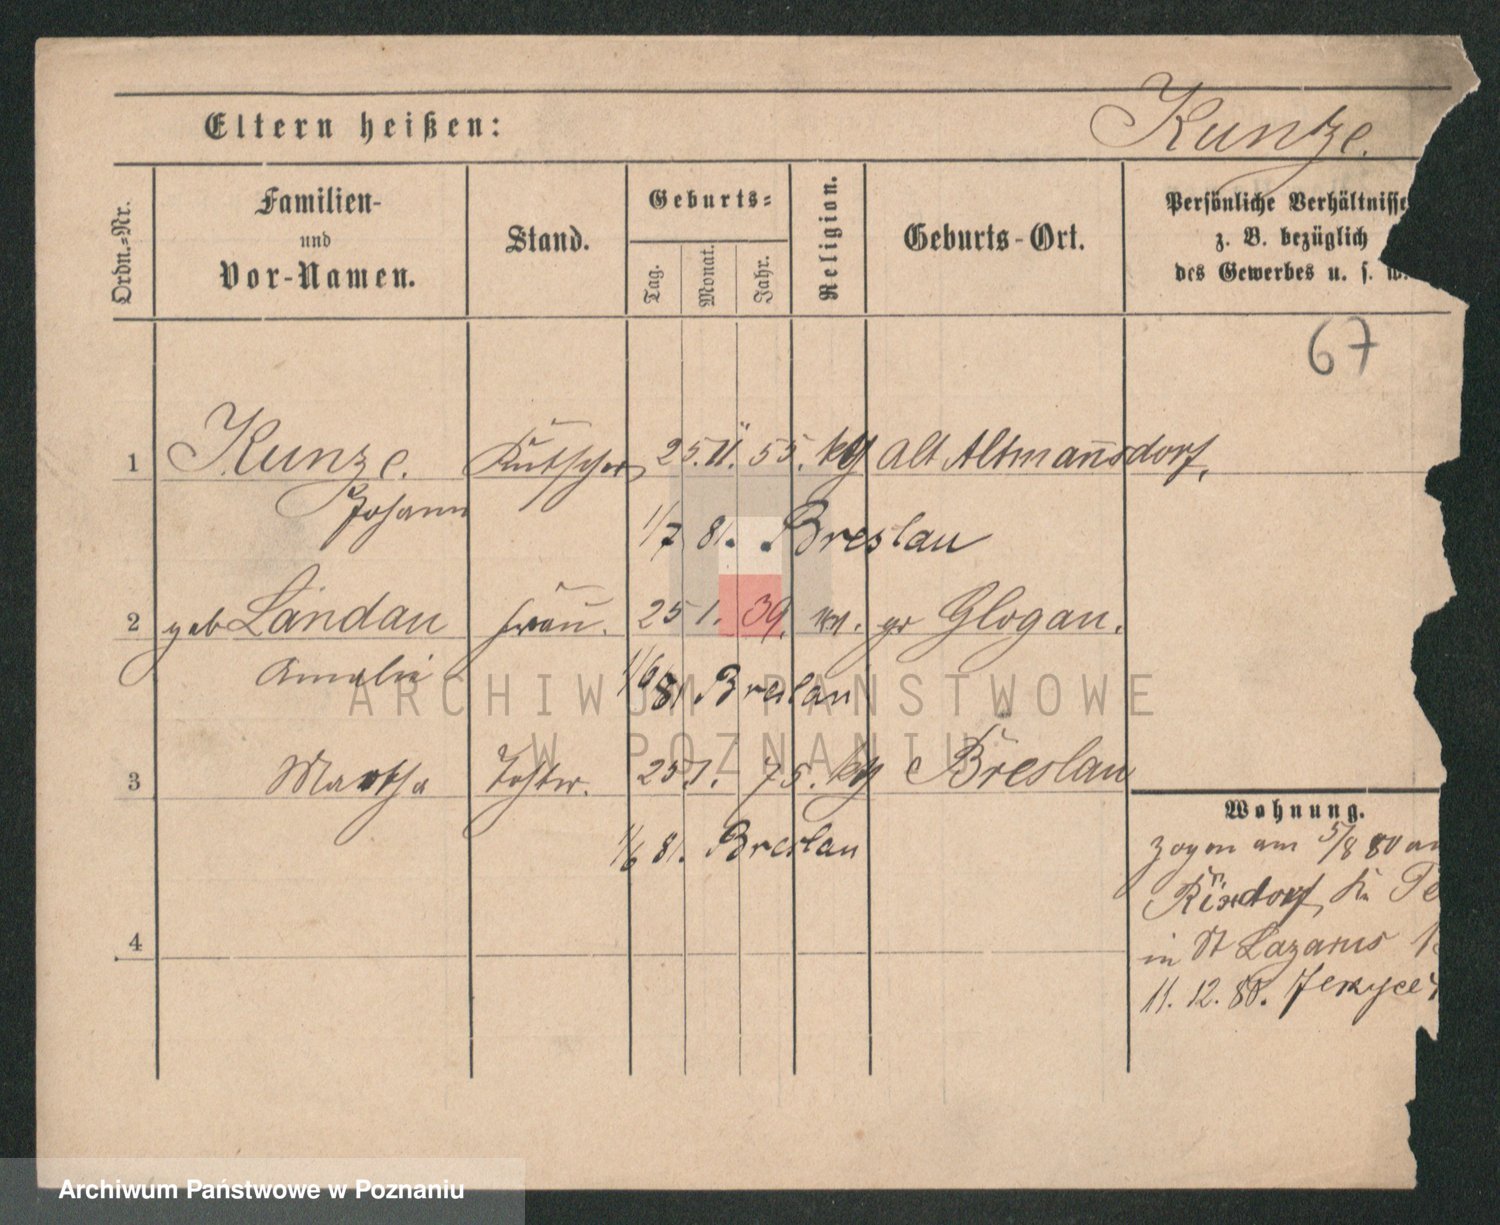 Eltern heißen:
Kunze.
Ordn.=Nr.
Familien-
und
Vor-Namen.
Stand.
Geburts=
Tag.
Monat.
Jahr.
Religion.
Geburts-Ort.
Persönliche Verhältnisse
z. B. bezüglich
des Gewerbes u. s. w.
67
1 Kunze. Kutscher 25. 11. 55. kth Alt Altmannsdorf,
Johann
1/7 81. Breslau
2 geb Landau Frau. 25 1. 39. gr Glogau.
Amalie
1/6 81. Breslau
3 Martha Tochter. 25 1. 75. kth Breslau
1/6 81. Breslau
4
Wohnung.
zogen am 5/8 80
Rixdorf,
in St Lazarus
11. 12. 80. Jerzyce
ARCHIWUM PAŃSTWOWE
W POZNANIU
Archiwum Państwowe w Poznaniu